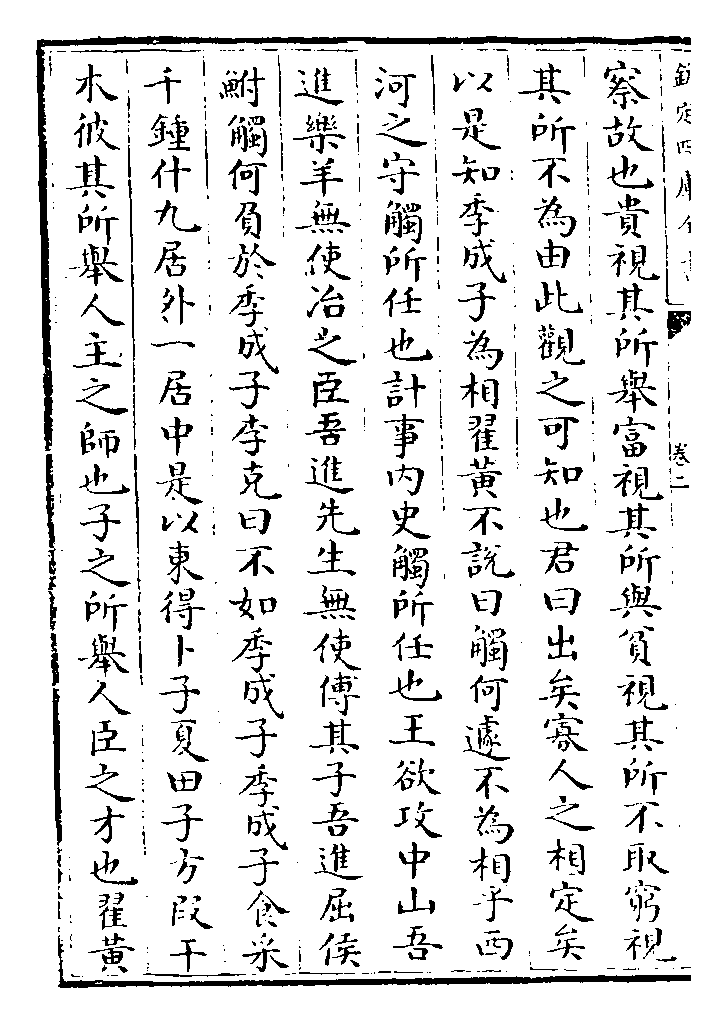 欽定四庫全書
卷二
察故也貴視其所舉富視其所與貧視其所不取窮視
其所不為由此觀之可知也君曰出矣寡人之相定矣
以是知季成子為相翟黄不説曰觸何遽不為相乎西
河之守觸所任也計事内史觸所任也王欲攻中山吾
進樂羊無使冶之臣吾進先生無使傅其子吾進屈侯
鮒觸何負於季成子李克曰不如季成子季成子食采
千鍾什九居外一居中是以東得卜子夏田子方段干
木彼其所舉人主之師也子之所舉人臣之才也翟黄